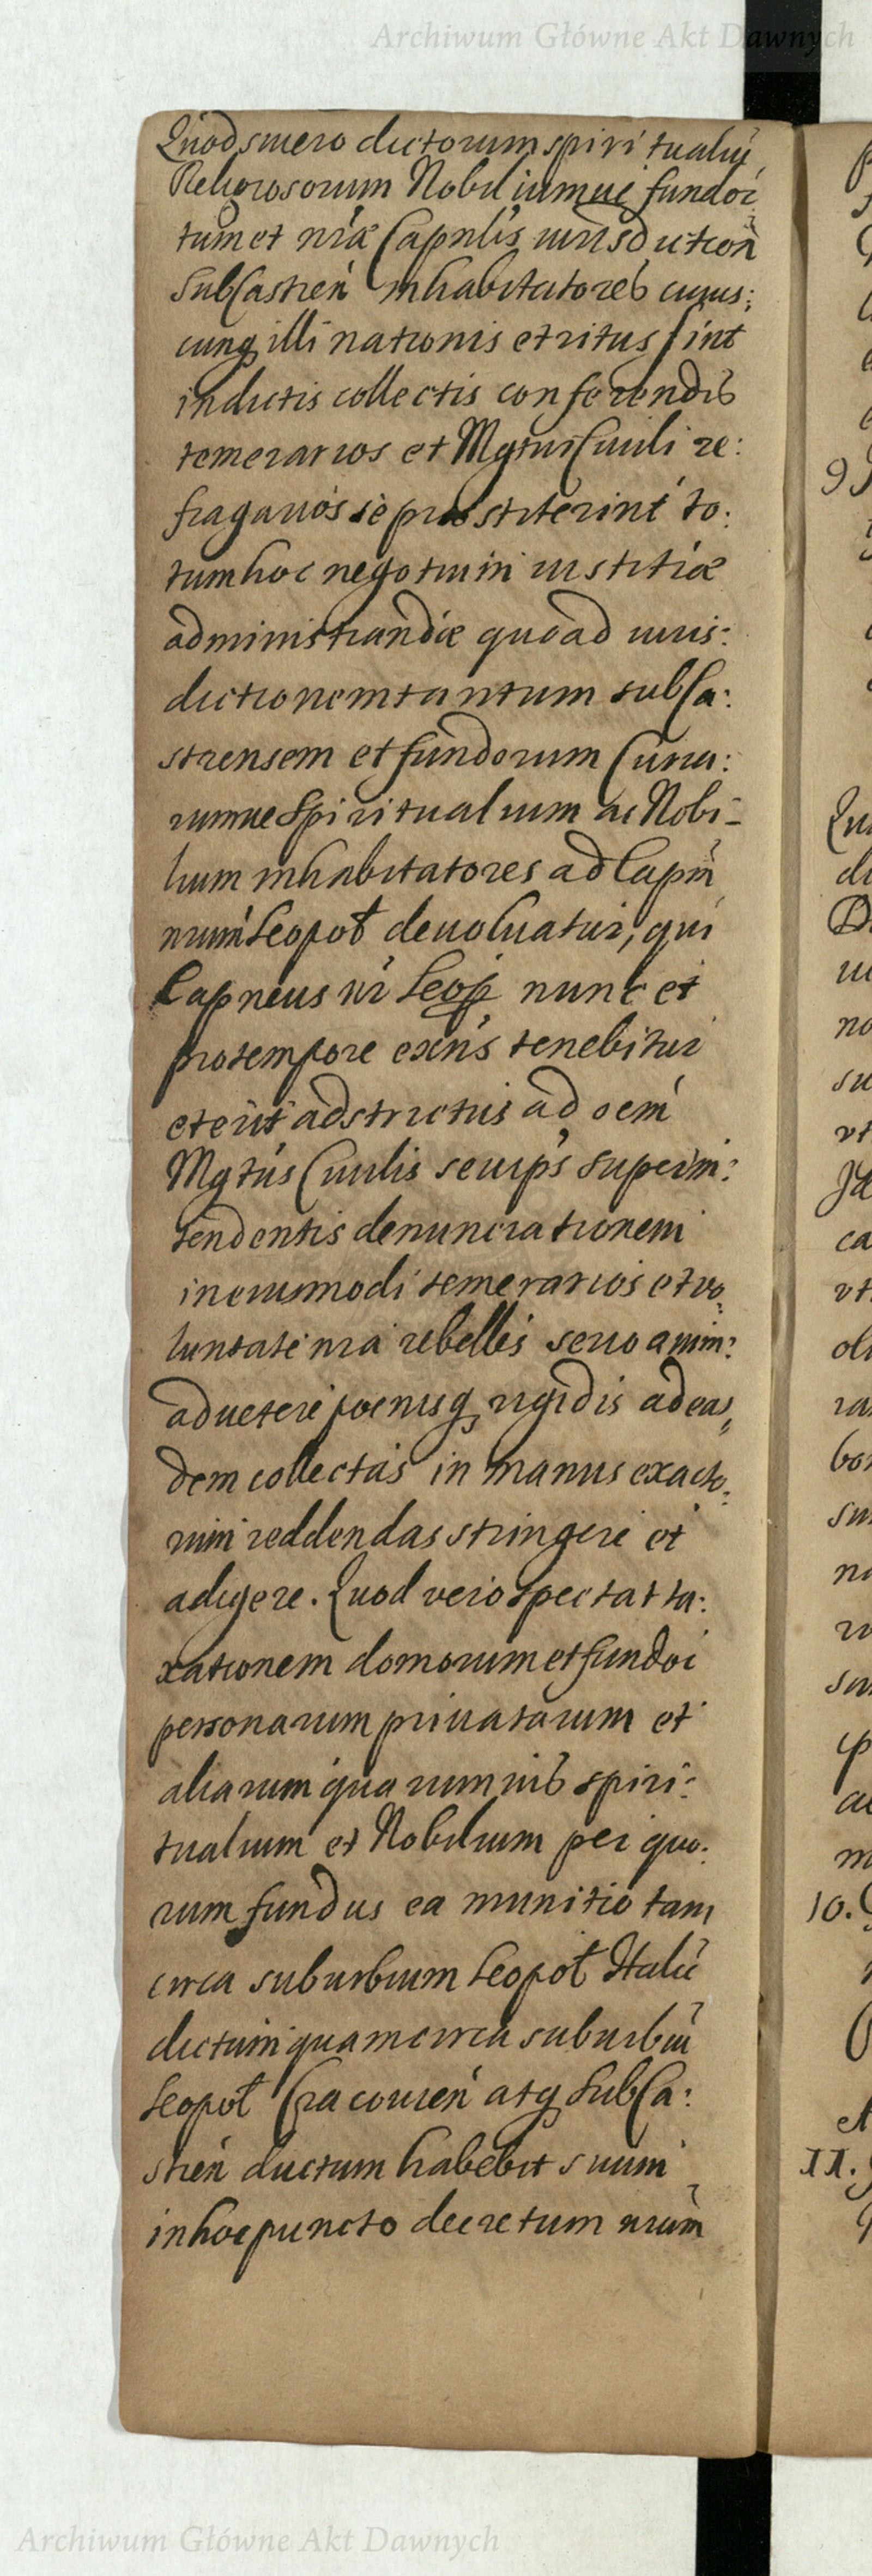 Archiwum Główne Akt Dawnych
Quodsi vero dictorum spiritualiũ
Religiosorum Nobiliumue fundor
tum et nrae Capnlis iurisdiction
SubCastren inhabitatores cuius:
cunq illi nationis et ritus sint
in dictis collectis conferendis
temerarios et Mgtui Ciuili re:
fragarios se praestiterint to:
tum hoc negotium iustitiae
administrandae quoad iuris:
dictionem tantum subCa:
strensem et fundorum Curia:
rumue Spiritualium ac Nobi-
lium inhabitatores ad Capm
nrum Leopol deuoluatur, qui
Capneus nr Leop nunc et
pro tempore exns tenebitur
et erit adstrictus ad oem
Mgtus Ciuilis seu ips superin:
tendentis denunciationem
in eiusmodi temerarios et vo:
luntati nra rebelles serio anim:
aduertere poenisq rigidis ad eas,
dem collectas in manus exacto:
rum reddendas stringere et
adigere. Quod vero spectat ta:
xationem domorum et fundor
personarum priuatarum et
aliarum quarumuis spiri:
tualium et Nobilium per quo:
rum fundus ea munitio tam
circa suburbium Leopol Halic
dictum quam circa suburbiũ
Leopol Cracouien atq SubCa:
strен ductum habebit suum
in hoc puncto decretum nrum
9
10.
11.
Archiwum Główne Akt Dawnych